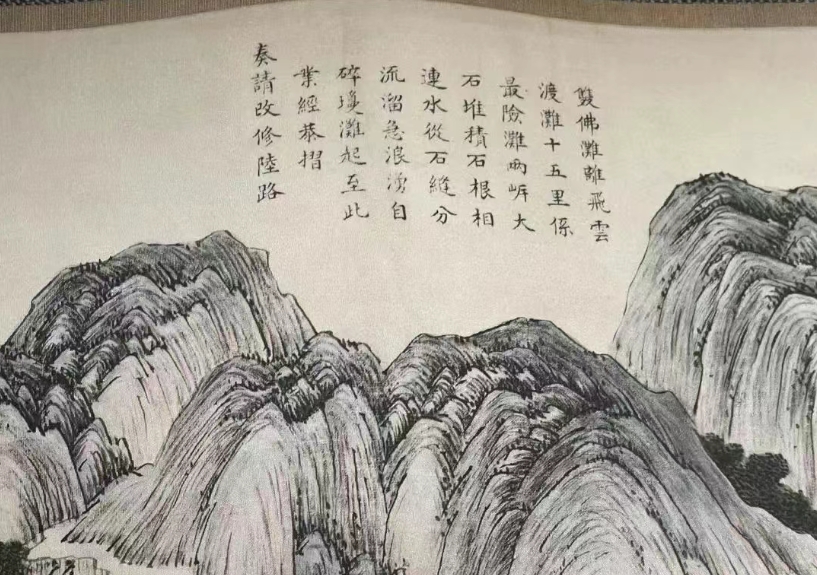 雙佛灘離飛雲
渡灘十五里係
最險灘兩岍大
石堆積石根相
連水從石縫分
流溜急浪湧自
碎瓊灘起至此
業經恭摺
奏請改修陸路